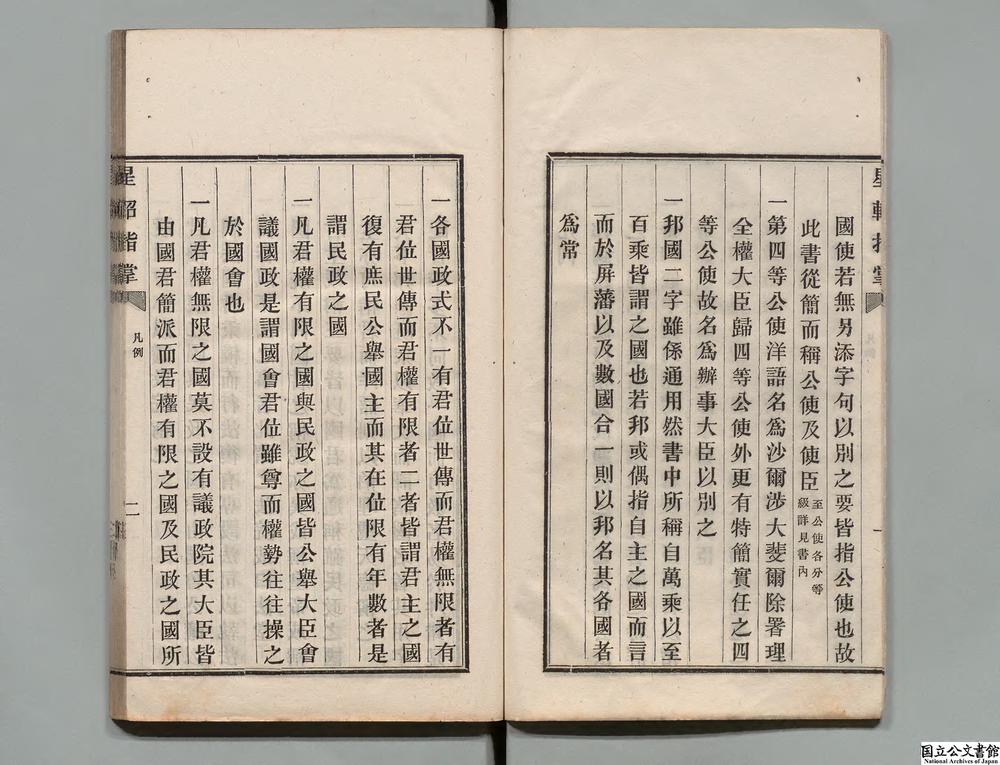 星軺指掌
一
國使若無另添字句以別之要皆指公使也故
此書從簡而稱公使及使臣至公使各分等
級詳見書內
一第四等公使洋語名爲沙爾涉大斐爾除署理
全權大臣歸四等公使外更有特簡實任之四
等公使故名爲辦事大臣以別之
一邦國二字雖係通用然書中所稱自萬乘以至
百乘皆謂之國也若邦或偶指自主之國而言
而於屏藩以及數國合一則以邦名其各國者
爲常
一各國政式不一有君位世傳而君權無限者有
君位世傳而君權有限者二者皆謂君主之國
復有庶民公舉國主而其在位限有年數者是
謂民政之國
一凡君權有限之國與民政之國皆公舉大臣會
議國政是謂國會君位雖尊而權勢往往操之
於國會也
一凡君權無限之國莫不設有議政院其大臣皆
由國君簡派而君權有限之國及民政之國所
星軺指掌
凡例
二
国立公文書館
National Archives of Japan